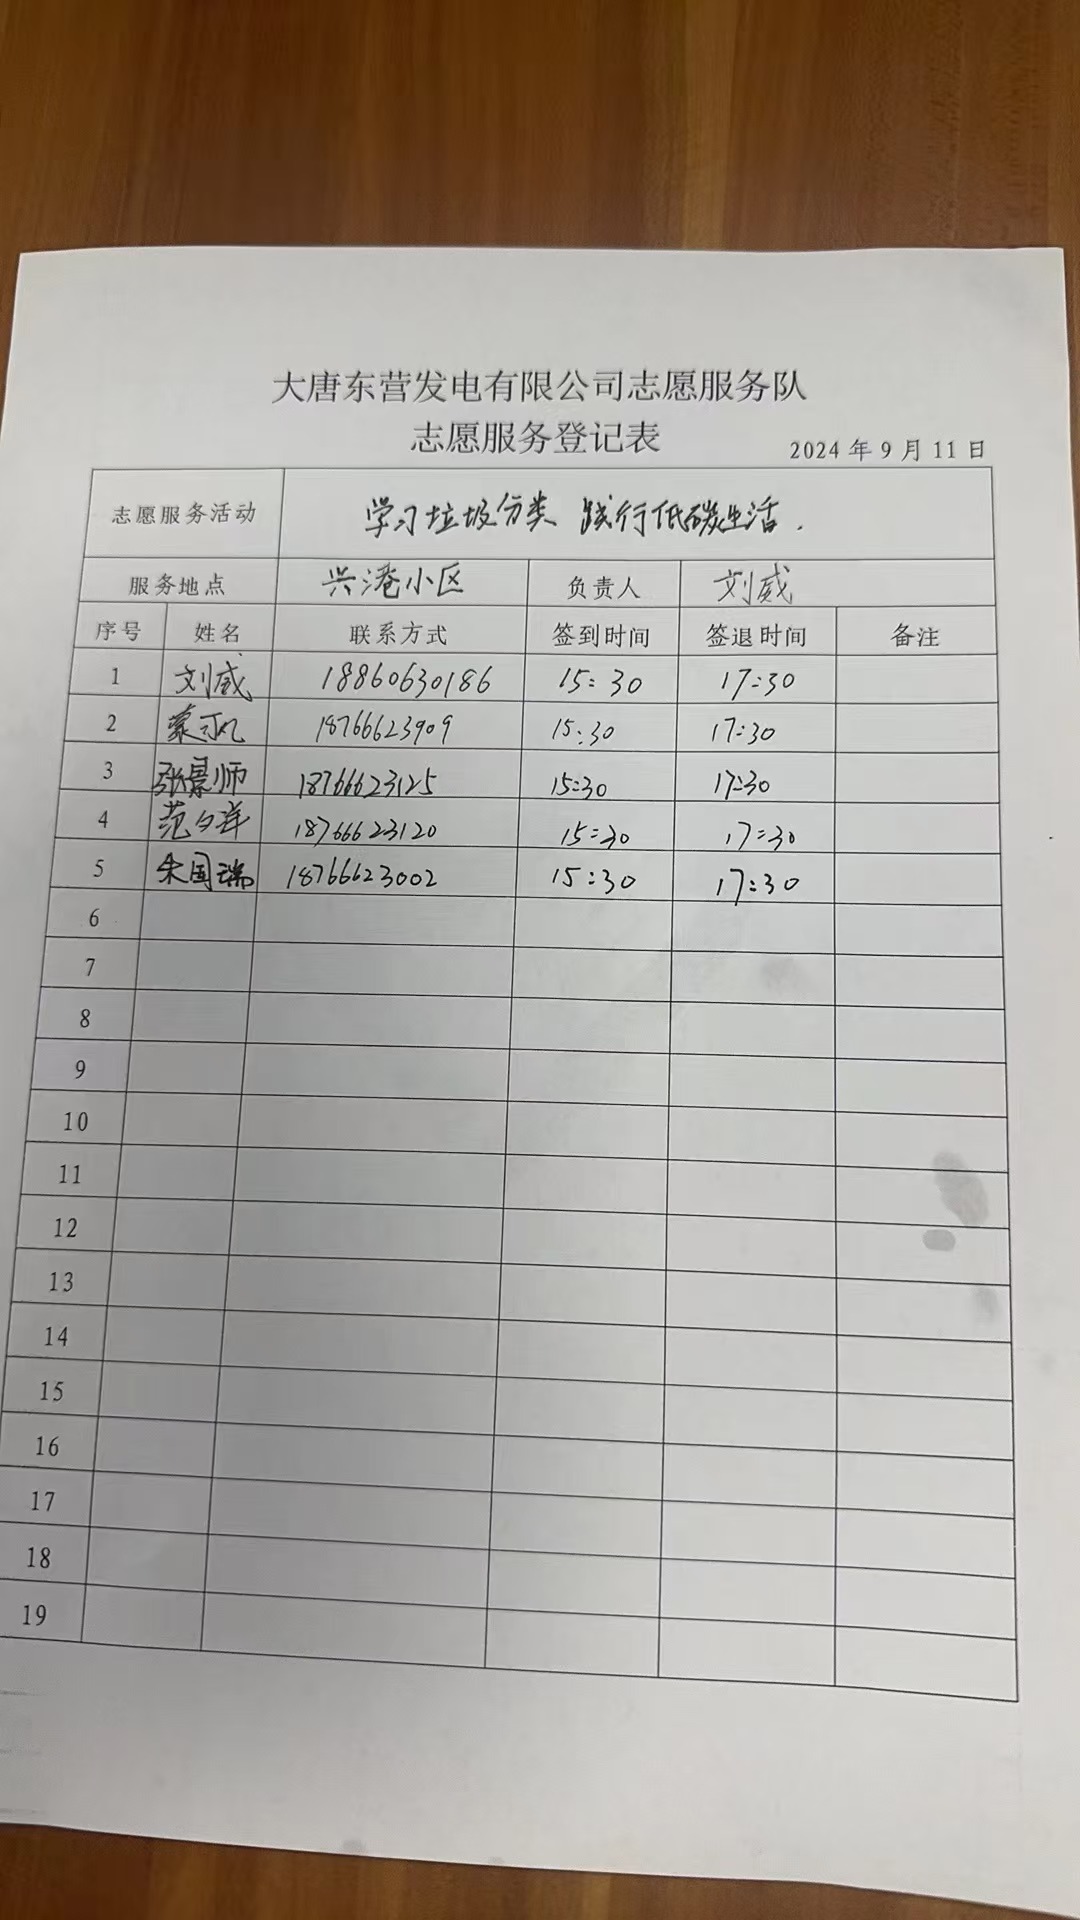 大唐东营发电有限公司志愿服务队
志愿服务登记表
2024年9月11日
志愿服务活动 学习垃圾分类 践行低碳生活.
服务地点 兴港小区 负责人 刘威
序号 姓名 联系方式 签到时间 签退时间 备注
1 刘威 18860630186 15:30 17:30
2 18766623909 15:30 17:30
3 张景师 18766623125 15:30 17:30
4 范夕洋 18766623120 15:30 17:30
5 朱国瑞 18766623002 15:30 17:30
6
7
8
9
10
11
12
13
14
15
16
17
18
19